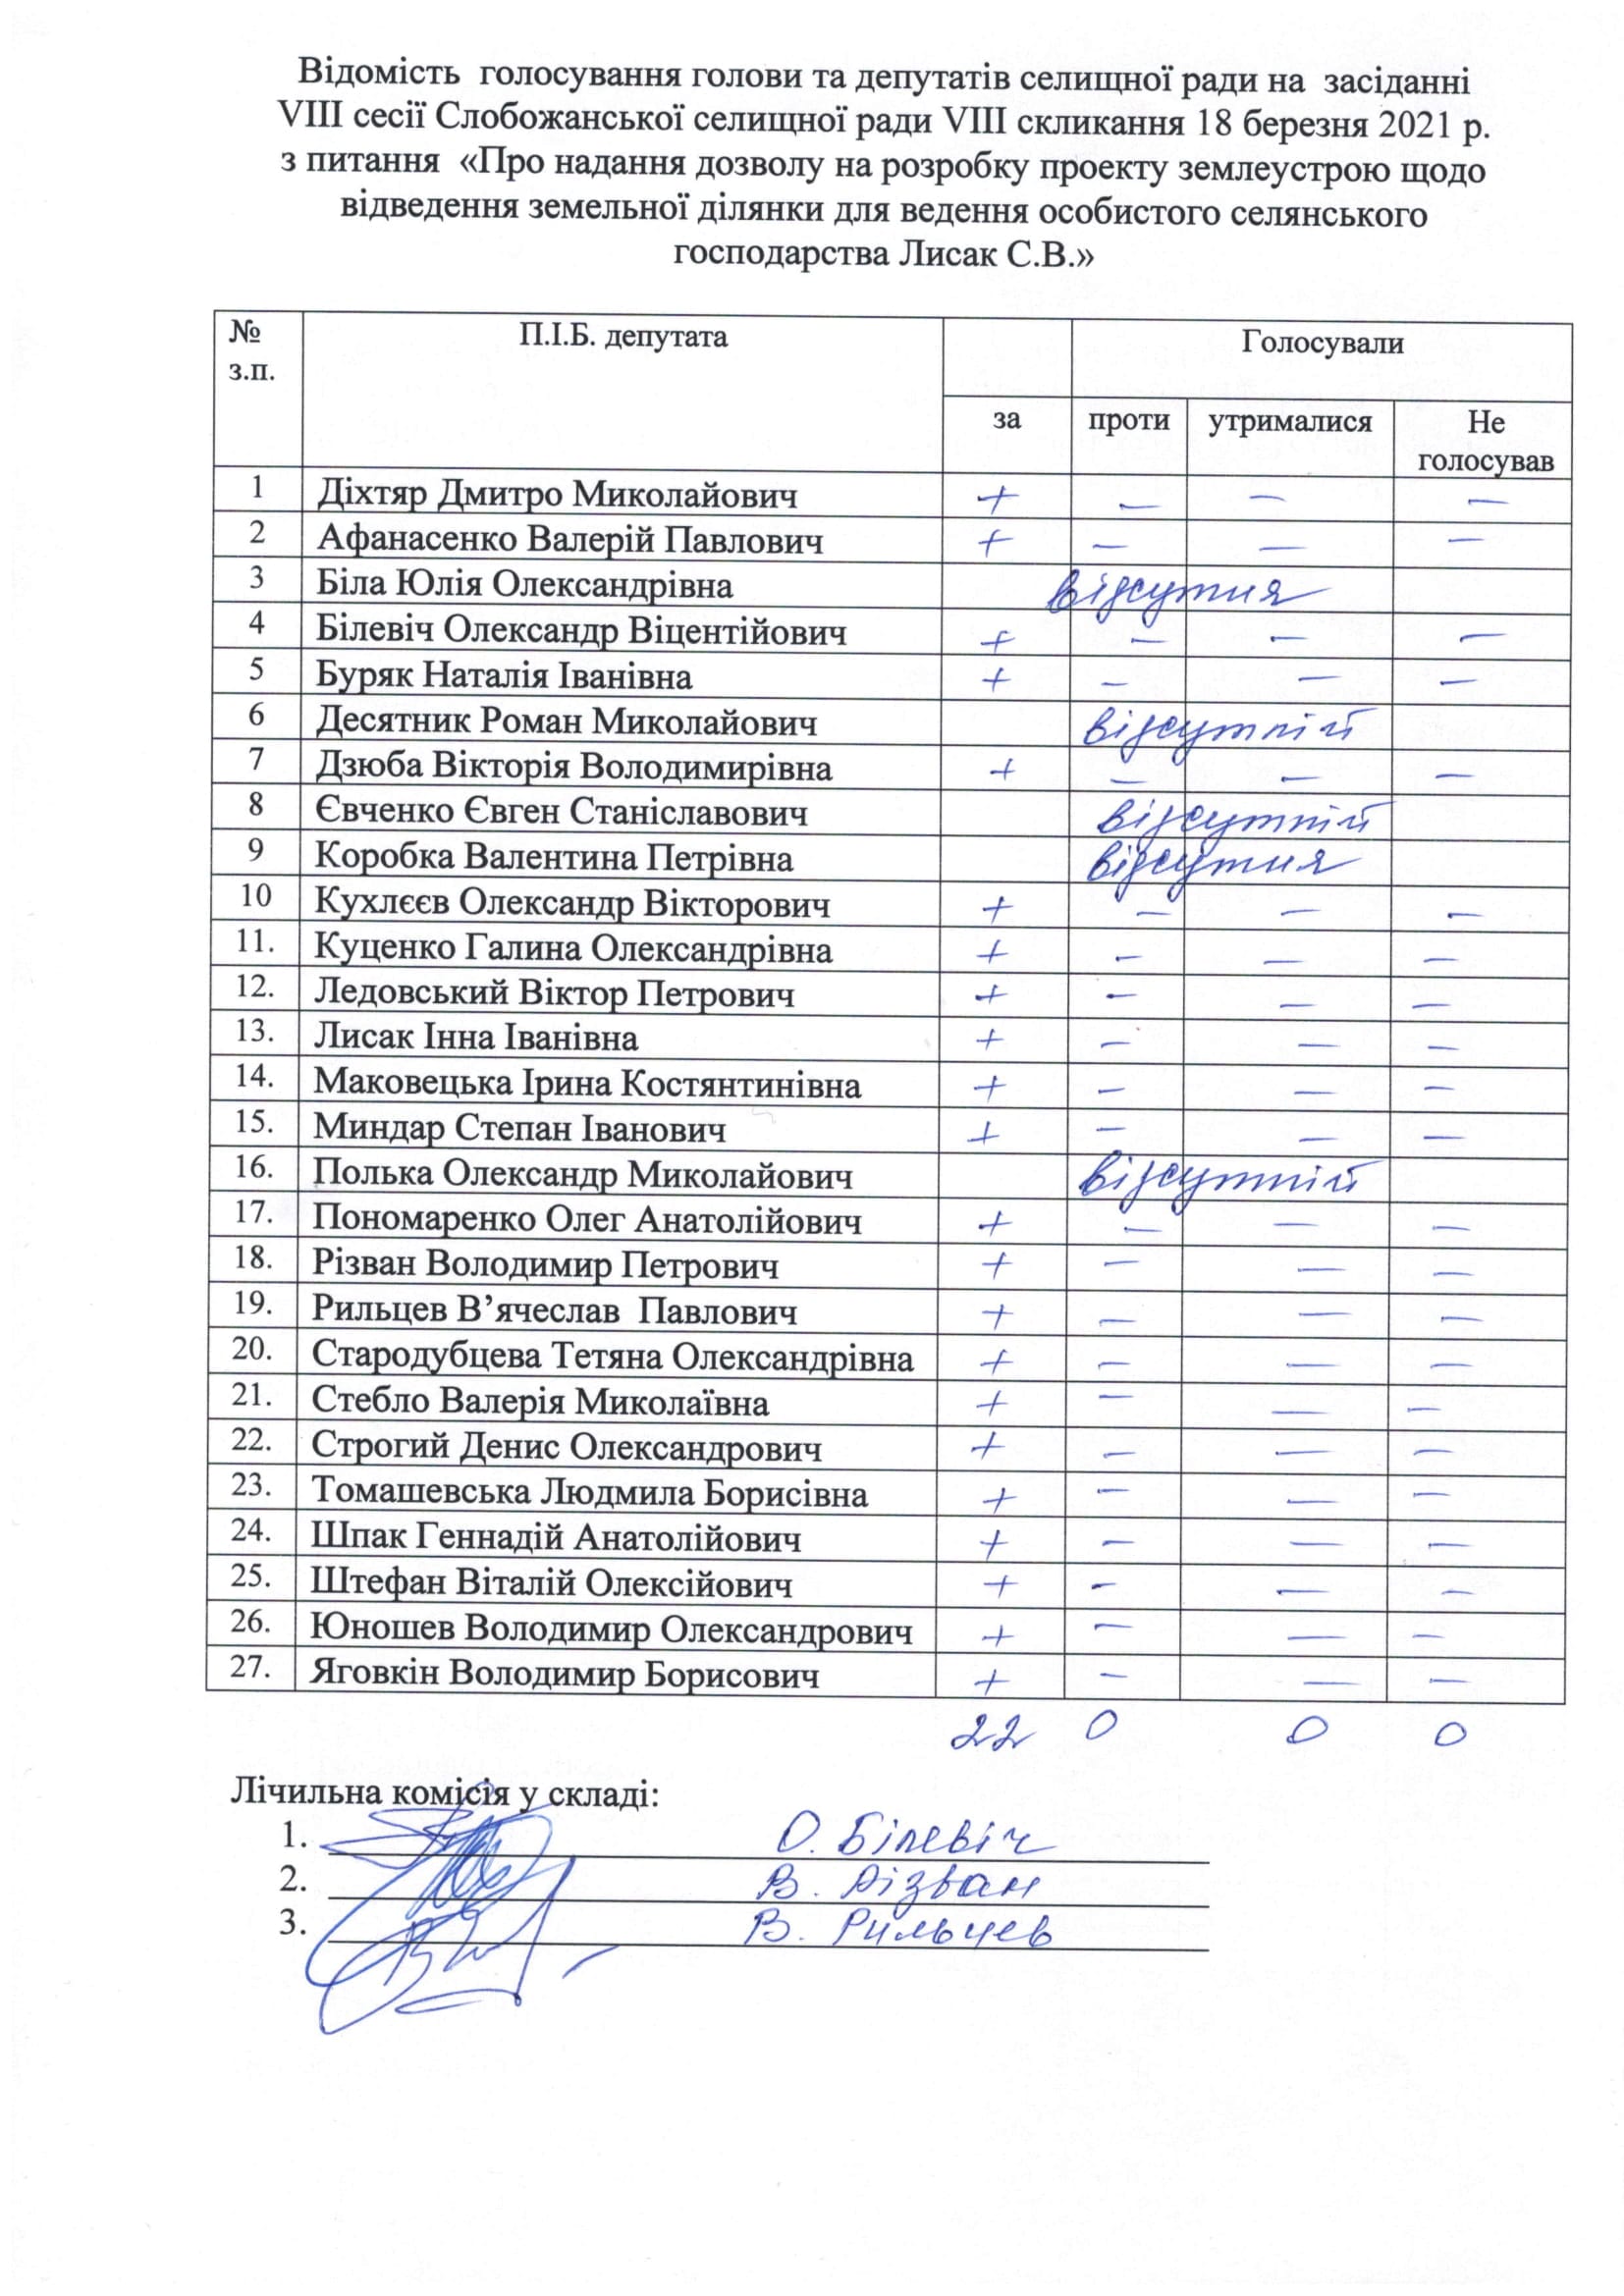 Відомість голосування голови та депутатів селищної ради на засіданні
VIII сесії Слобожанської селищної ради VIII скликання 18 березня 2021 р.
з питання «Про надання дозволу на розробку проекту землеустрою щодо
відведення земельної ділянки для ведення особистого селянського
господарства Лисак С.В.»
№ з.п. П.І.Б. депутата Голосували
за проти утрималися Не голосував
1 Діхтяр Дмитро Миколайович + — — —
2 Афанасенко Валерій Павлович + — — —
3 Біла Юлія Олександрівна відсутня
4 Білевіч Олександр Віцентійович + — — —
5 Буряк Наталія Іванівна + — — —
6 Десятник Роман Миколайович відсутній
7 Дзюба Вікторія Володимирівна + — — —
8 Євченко Євген Станіславович відсутній
9 Коробка Валентина Петрівна відсутня
10 Кухлєєв Олександр Вікторович + — — —
11. Куценко Галина Олександрівна + — — —
12. Ледовський Віктор Петрович + — — —
13. Лисак Інна Іванівна + — — —
14. Маковецька Ірина Костянтинівна + — — —
15. Миндар Степан Іванович + — — —
16. Полька Олександр Миколайович відсутній
17. Пономаренко Олег Анатолійович + — — —
18. Різван Володимир Петрович + — — —
19. Рильцев В’ячеслав Павлович + — — —
20. Стародубцева Тетяна Олександрівна + — — —
21. Стебло Валерія Миколаївна + — — —
22. Строгий Денис Олександрович + — — —
23. Томашевська Людмила Борисівна + — — —
24. Шпак Геннадій Анатолійович + — — —
25. Штефан Віталій Олексійович + — — —
26. Юношев Володимир Олександрович + — — —
27. Яговкін Володимир Борисович + — — —
22 0 0 0
Лічильна комісія у складі:
1. О. Білевіч
2. В. Різван
3. В. Рильцев